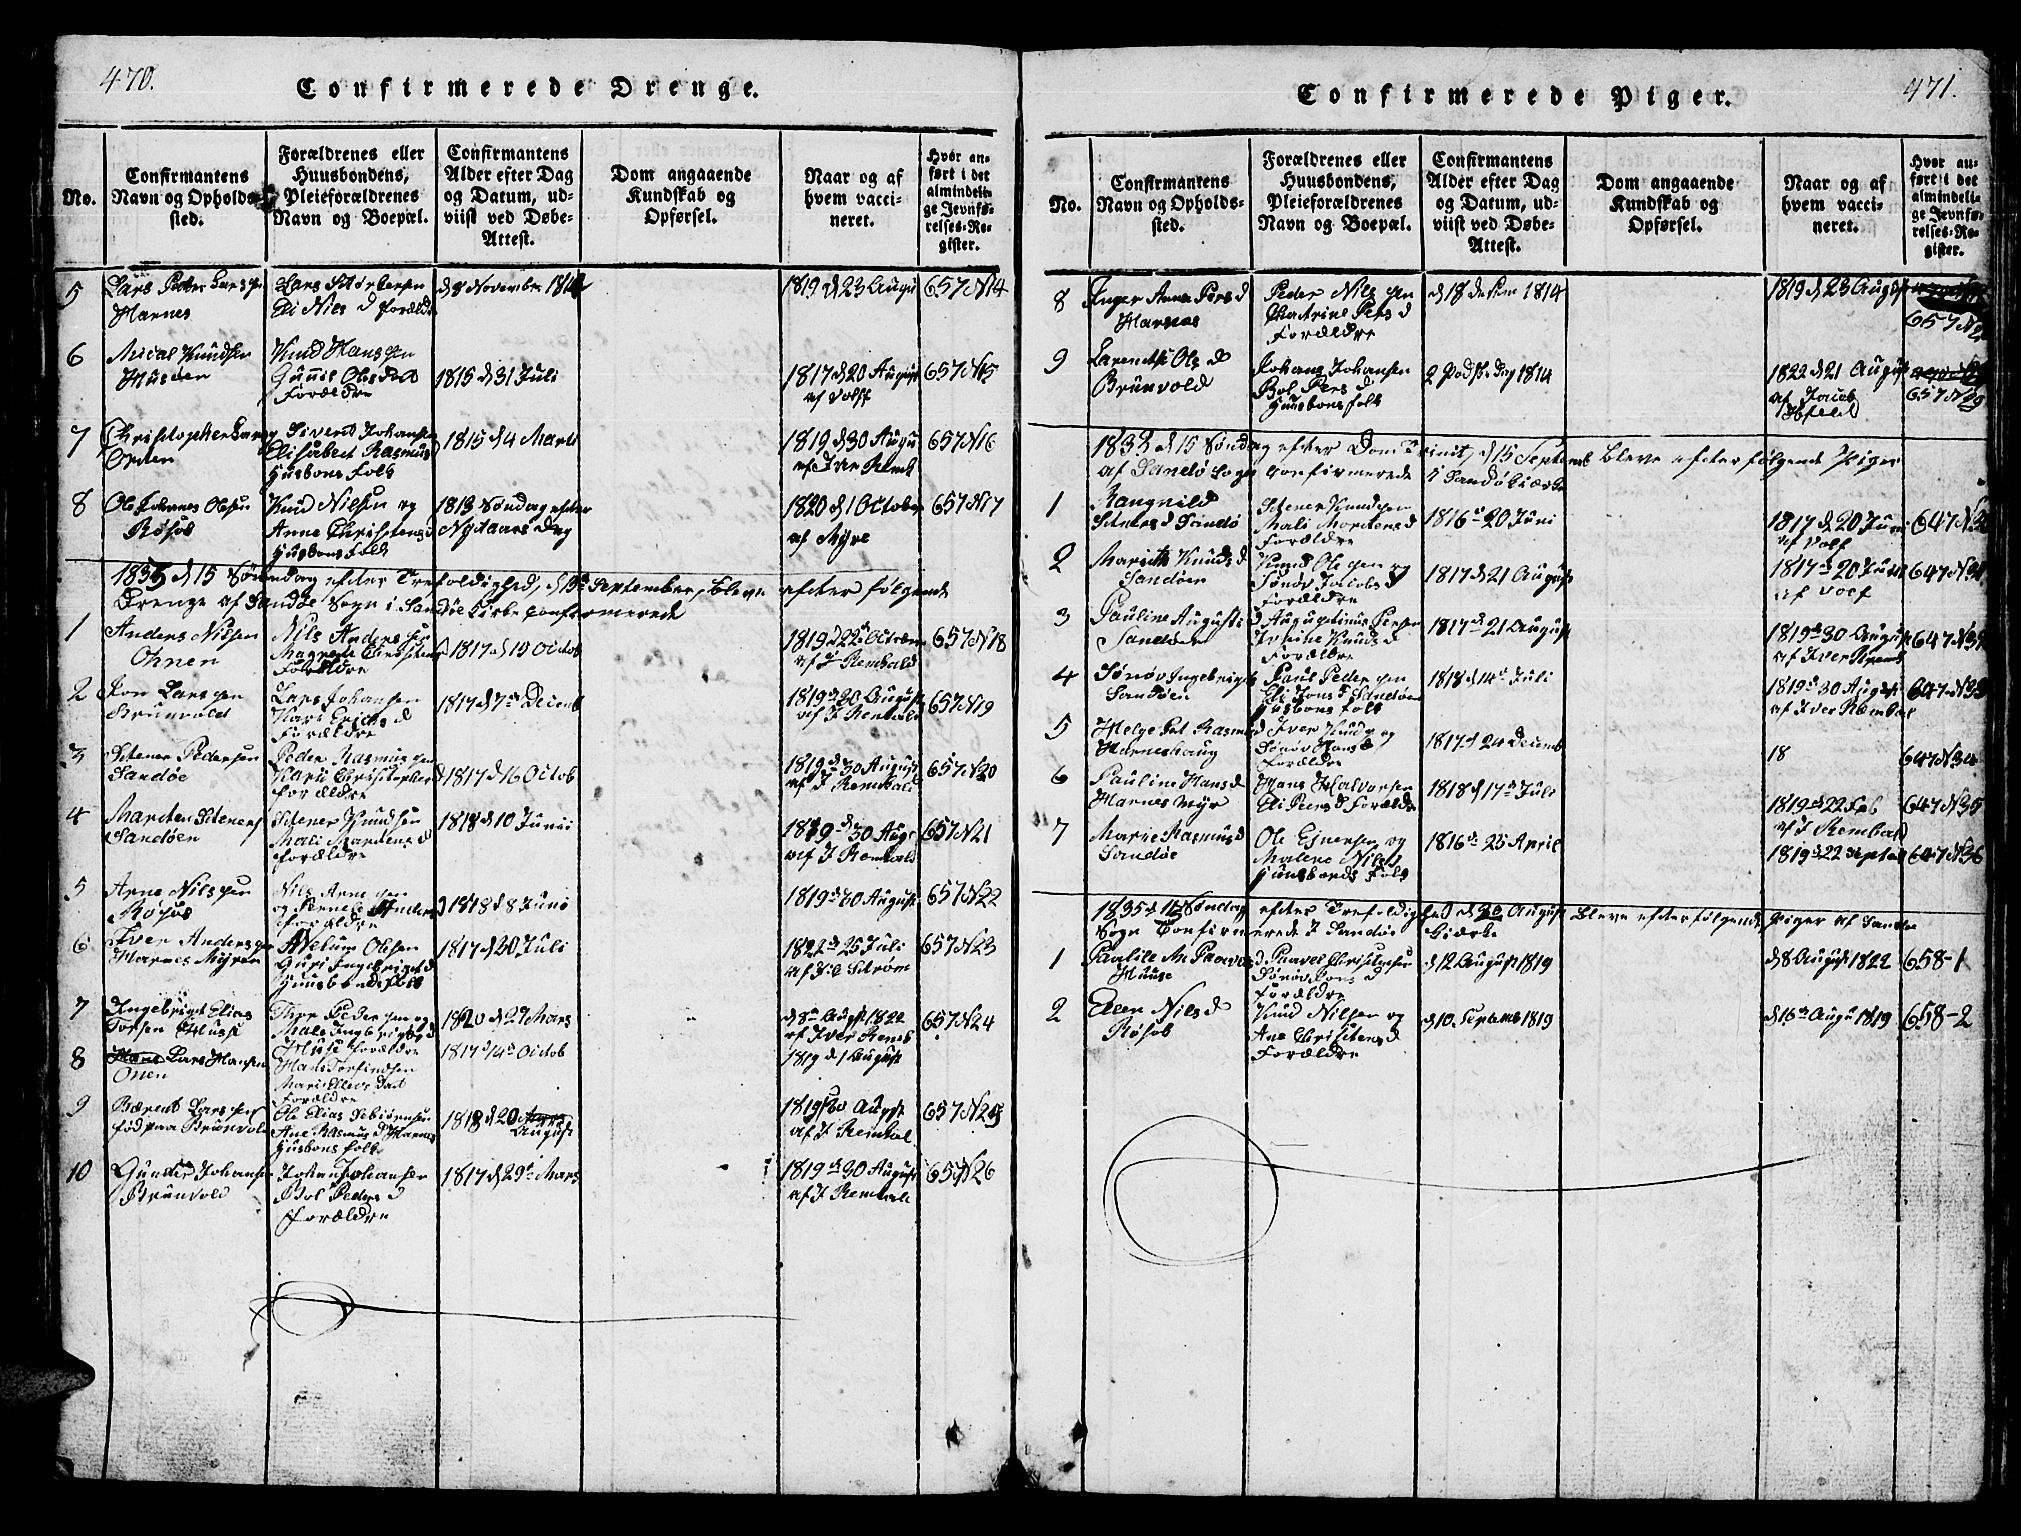 470.
Confirmerede Drenge.
No.
Confirmantens
Navn og Opholds-
sted.
Forældrenes eller
Huusbondens,
Pleieforældrenes
Navn og Boepæl.
Confirmantens
Alder efter Dag
og Datum, ud-
viist ved Døbe-
Attest.
Dom angaaende
Kundskab og
Opførsel.
Naar og af
hvem vacci-
neret.
Hvor an-
ført i det
almindeli-
ge Jevnfø-
relses-Re-
gister.
5
Lars Petter Larssen
Harnes
Lars
Eli Niels d Forældre
d 8 November 1814
1819 d 23 Augu
657 N14
6
Mical Knudsen
Husøen
Knud Hanssen
Gunil Olsd
Forældre
1815 d 31 Juli
1817 d 20 August
af Volff
657 N15
7
Christopher Lars
Orten
Sivert Johansen
Elisabet Rasmus
Husbonsfolk
1815 d 4 Marts
1819 d 30 Augu
af Iver Remb
657 N16
8
Ole Johanes Olsen
Røsok
Knud Nilsen og
Anne Christens d
Husbonsfolk
1813 Søndag efter
Nytaars Dag
1820 d 1 October
af Myre
657 N17
1833 d 15 Søndag efter Trefoldighed, d 15 September, Bleve efter følgende
Drenge af Sandøe Sogn i Sandøe Kirke confirmerede
1
Anders Nilsen
Ohnen
Nils Anderssen
Magrete Christens
Forældre
1817 d 19 Octob
1819 d 22 October
af J Rembald
657 N18
2
Jon Larssen
Brunvold
Lars Johansen
Kari Erichs d
Forældre
1817 d 7de Decemb
1819 d 20 August
af J Rembald
657 N19
3
Stener Pedersen
Sandøe
Peder Rasmussen
Karu Christopher
forældre
1817 d 16 Octob
1819 d 30 August
af J Rembald
657 N20
4
Marten Steners
Sandøen
Stener Knudsen
Mali Martens d
forældre
1818 d 10 Junii
1819 d 30 Augs
af J Rembald
657 N21
5
Arne Nilssen
Røsok
Nils Arnessen
og Anders
forældre
1818 d 8 Juni
1819 d 30 August
657 N22
6
Iver Anderssen
Harnes Myren
Olsen
Guri Ingebrigt d
Huusbondsfolk
1817 d 20 Juli
1822 d 25 Juli
af Strøm
657 N23
7
Ingebrigt Elias
Torsen Husse
Thor Pedersen og
Mals Ingbrigts d
Huse forældre
1820 d 27 Mars
d 8de Augst 1822
af Iver Remb
657 N24
8
Lars Hansen
Onen
Hans Torfindsen
Mari
Forældre
1817 d 14de Octob
1819 d 1 August
9
Bærent Larssen
fød paa Brunvold
Ole Elias
Ane Rasmus d Harnes
Husbonsfolk
1818 d 20
August
1819 d 30 August
af J Rembal
657 N25
10
Gunder Johansen
Brunvold
Johan Johansen
Bol Peders d
forældre
1817 d 29de Mars
1819 d 30 August
af J Rembald
657 N26
471.
Confirmerede Piger.
No.
Confirmantens
Navn og Opholds-
sted.
Forældrenes eller
Huusbondens,
Pleieforældrenes
Navn og Boepæl.
Confirmantens
Alder efter Dag
og Datum, ud-
viist ved Døbe-
Attest.
Dom angaaende
Kundskab og
Opførsel.
Naar og af
hvem vacci-
neret.
Hvor an-
ført i det
almindeli-
ge Jevnfø-
relses-Re-
gister.
8
Inger Anne Pers d
Harnes
Peder Nilssen
Catrine Pers d
Forældre
d 18 1814
1819 d 23 August
657
9
Ols d
Brunvold
Johans Johansen
Bol Pers d
Husbonsfolk
2 dag 1814
1822 d 21 August
af Jacob
657 N29
1833 d 15 Søndag efter Dom Trinit, d 15 Septemb Bleve efterfølgende Piger
af Sandø Sogn Confirmerede i Sandø Kierke
1
Rangnild
Steners d Sandø
Stener Knudssen
Mali Mortens d
Forældre
1816 d 20 Juni
1817 d 20 Juni
af Volf
647 N30
2
Marith Knuds d
Sandøen
Knud Olssen og
Sønøv Jacobs d
Forældre
1817 d 21 August
1817 d 20 Juni
af Volf
647 N31
3
Pauline Augusti
Sandøen
d Augustinus Persen
Knuds d
Forældre
1817 d 21 August
1819 d 30 August
af Iver Remb
647 N32
4
Sønøv Ingebrigts
Sandøen
Paul Pederssen
Eli Jons d Sandøen
Husbonsfolk
1818 d 14de Juli
1819 d 30 August
af Iver Rembal
647 N33
5
Helge Rasmus d
Harneshaug
Iver Knuds og
Sønøv Hans d
forældre
1817 d 24 Decemb
18
647 N34
6
Pauline Hans d
Harnes Myr
Hans Halvorsen
Eli Peers d Forældre
1818 d 17de Juli
1819 d 22 Feb
af J Rembald
647 N35
7
Marie Rasmus d
Sandøe
Ole Ejnersen og
Malene Nils d
Huusbonds Folk
1816 d 25 April
1819 d 22 Septem
647 N36
1835 d Søndag efter Trefoldighed d 30 August Bleve efterfølgende Piger af Sandøe
Sogn Confirmerede i Sandøe Kierke
1
Huuse
d Paavel Christensen
Sønøv Jons d
forældre
d 12 August 1819
d 8 August 1822
658-1
2
Elen Nils d
Røsok
Knud Nilsen og
Ane Christens d
Forældre
d 10 Septemb 1819
d 16de Augu 1819
658-2